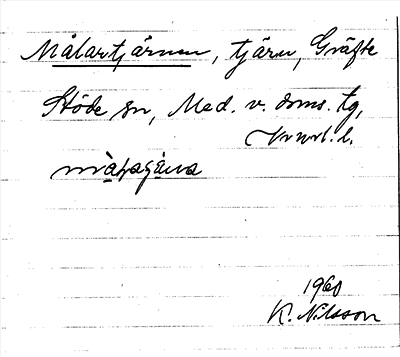 Målartjärnen, tjärn, Gräfte
Stöde sn, Med. v. doms. tg,
Vnrl. l.
1960
K. Nilsson